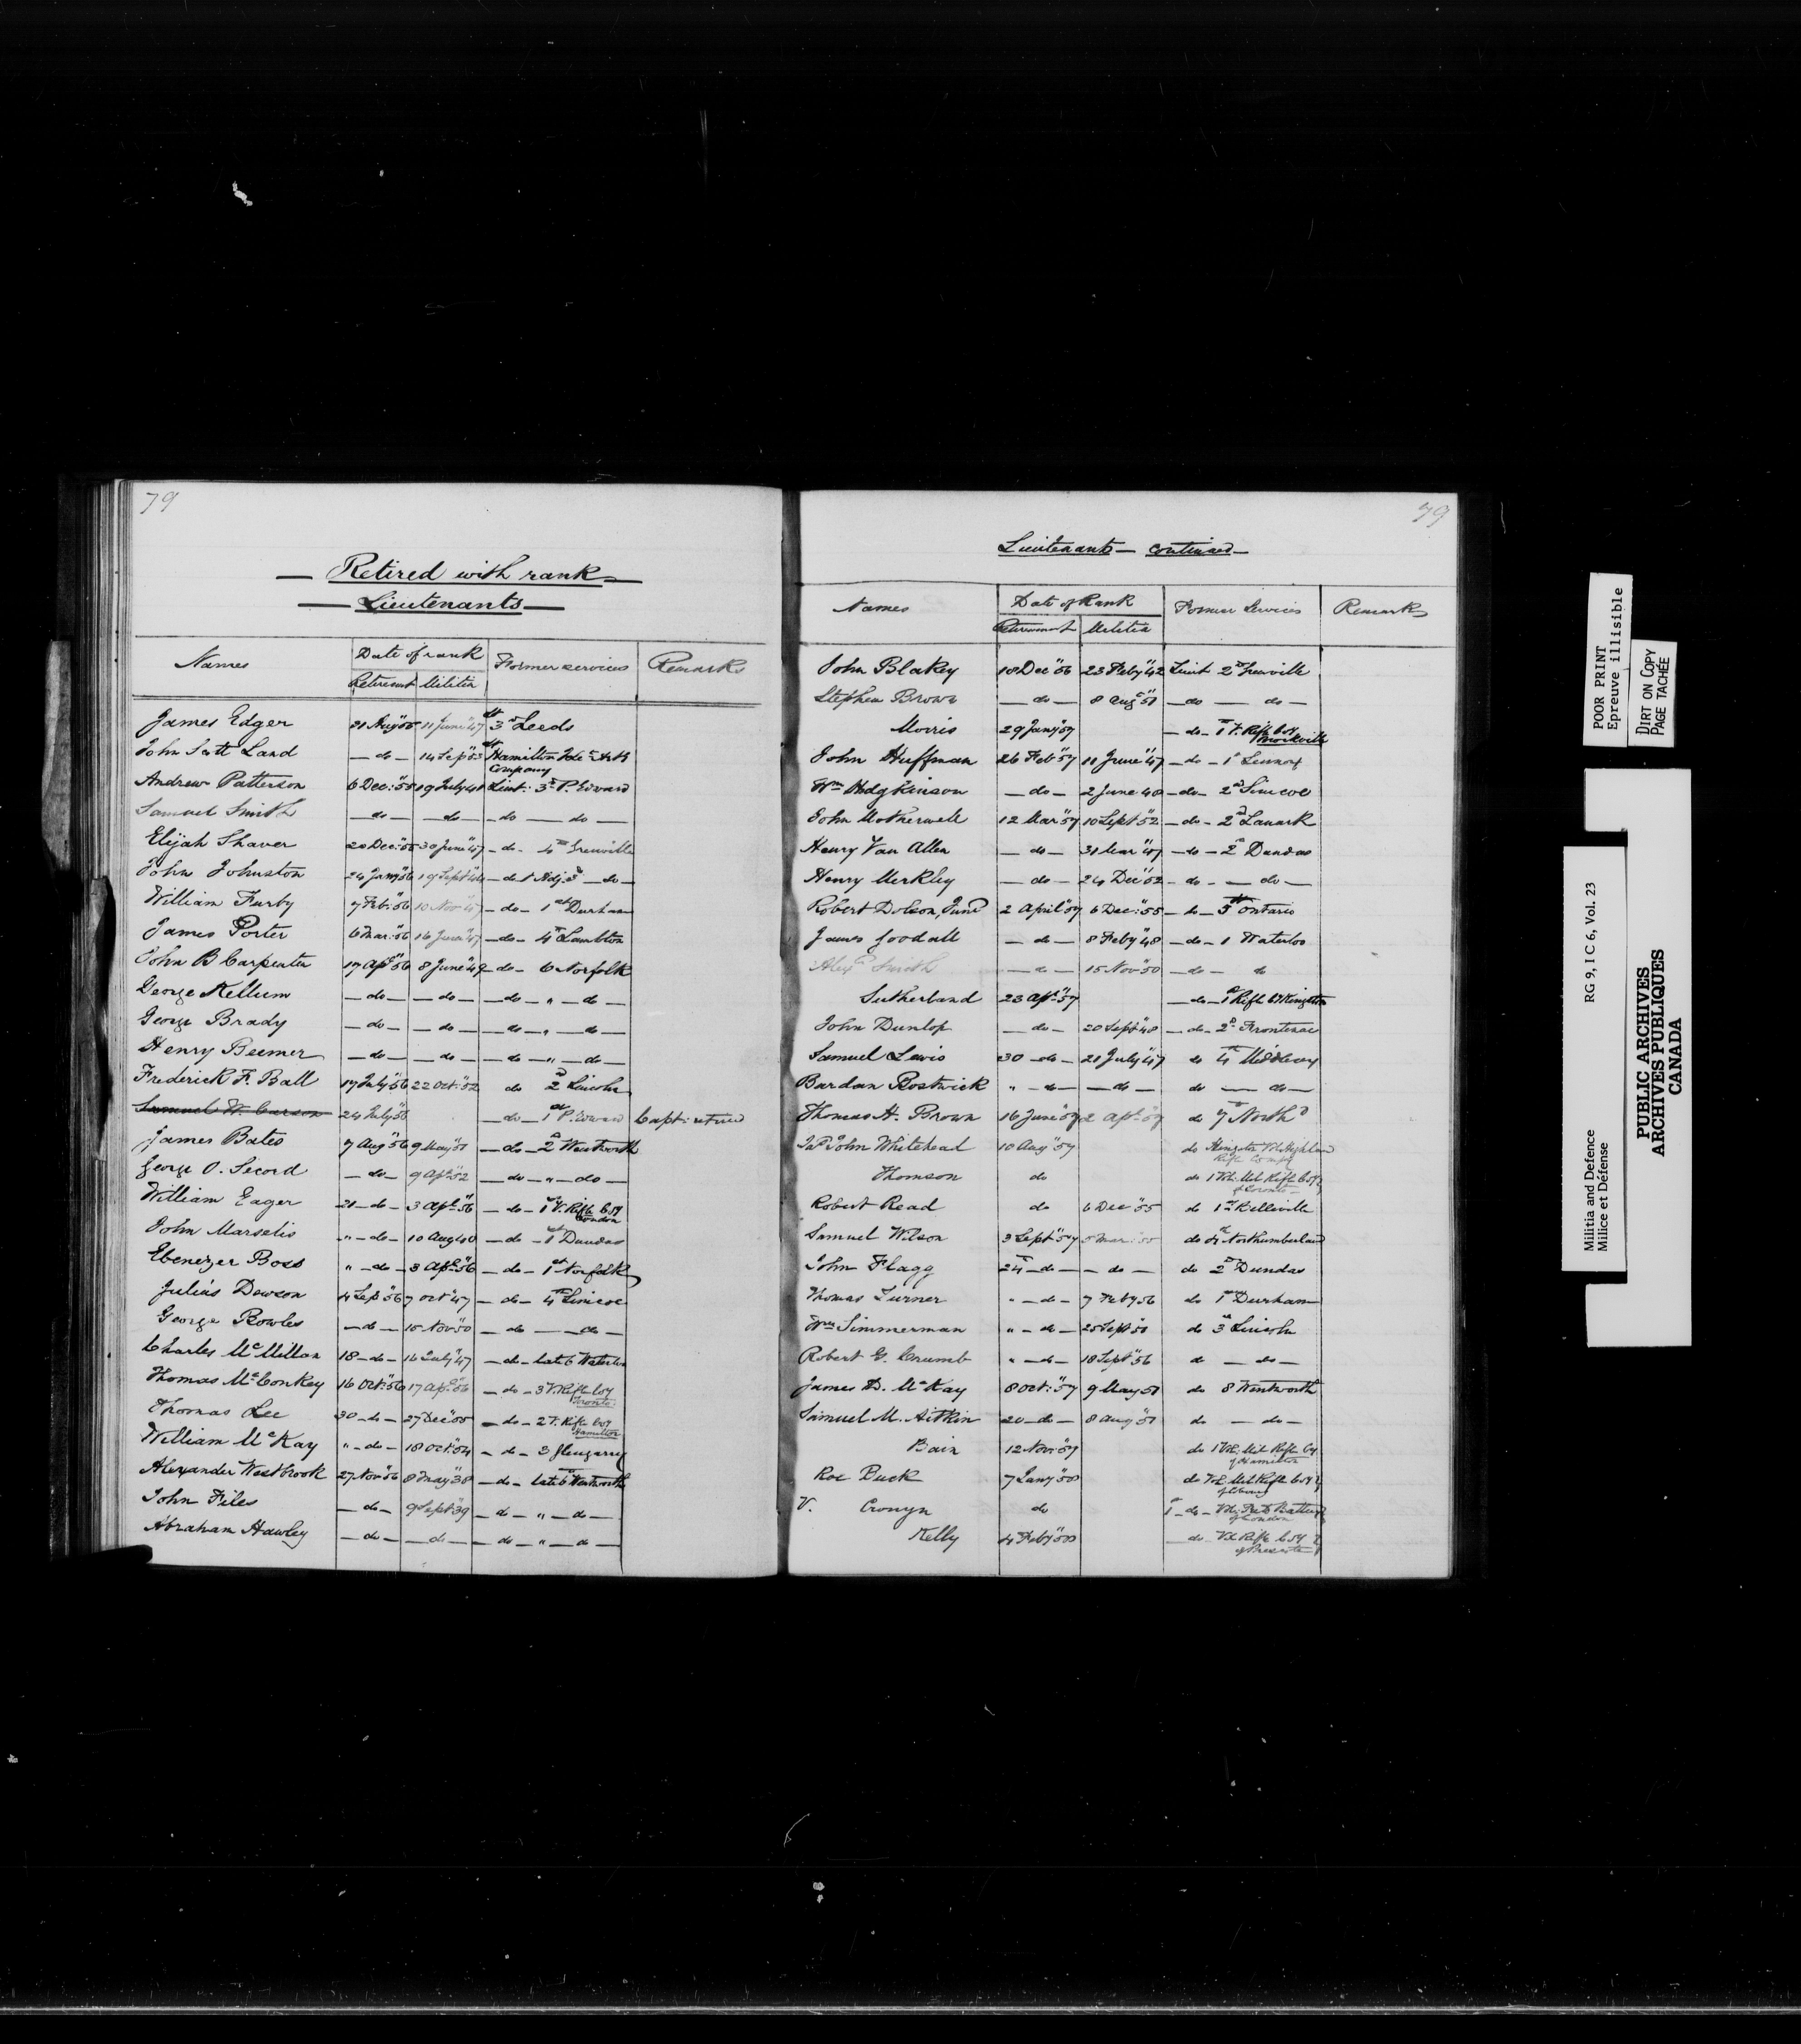 79
Retired with rank
Lieutenants
Names Date of rank Former services Remarks
Retirement Militia
James Edger 21 Aug "55 11 June "47 3rd Leeds
John Land — do — 14 Sep "53 Hamilton
Company
Andrew Patterson 6 Dec: "55 19 July Lieut: 3rd P. Edward
Samuel Smith — do — — do — — do — do —
Elijah Shaver 20 Dec: "55 30 June "47 — do — 4th Grenville
John Johnston 24 Jany "56 19 Sept — do & Adj. 3d — do —
William Furby 7 Feb: "56 10 Nov "47 — do — 1st Durham
James Porter 6 Mar: "56 16 June "47 — do — 4th Lambton
John B Carpenter 17 Apl "56 8 June "49 — do — 6 Norfolk
George Kellum — do — — do — — do — " — do —
George Brady — do — — do — — do — " — do —
Henry Beemer — do — — do — — do — " — do —
Frederick F. Ball 17 July "56 22 Oct: "52 do 2d Lincoln
Samuel W. Carson 24 July "56 — do — 1st P. Edward Capt: retired
James Bates 7 Aug "56 9 May "51 — do — 2d Wentworth
George O. Secord — do — 9 Apl "52 — do — " — do —
William Eager 21 — do — 3 Apl "56 — do — 1st V. Rifle Coy
London
John Marselis " — do — 10 Aug 40 — do — 1st Dundas
Ebenezer Boss " — do — 3 Apl "56 — do — 1st Norfolk
Julius Dewson 4 Sep "56 7 Oct "47 — do — 4th Simcoe
George Rowles — do — 15 Nov "50 — do — do —
Charles McMillan 18 — do — 16 July "47 — do — late 6 Waterloo
Thomas McConkey 16 Oct: "56 17 Apl "56 — do — 3 V. Rifle Coy
Toronto
Thomas Lee 30 — do — 27 Dec "55 — do — 2 V. Rifle Coy
Hamilton
William McKay " — do — 18 Oct: "54 — do — 3 Glengarry
Alexander Westbrook 27 Nov "56 8 May "38 — do — late 6th Wentworth
John Files — do — 9 Sept "39 — do — " — do —
Abraham Hawley — do — — do — — do — " — do —
79
Lieutenants — continued —
Names Date of Rank Former Services Remarks
Retirement Militia
John Blakey 18 Dec "56 23 Feby "42 Lieut 2d Grenville
Stephen Brown — do — 8 Aug "51 — do — do —
Morris 29 Jany "57 — do — 1st V. Rifle Coy
Brockville
John Huffman 26 Feb "57 11 June "47 — do — 1st Lennox
Wm Hodgkinson — do — 2 June 40 — do — 2d Simcoe
John Motherwell 12 Mar "57 10 Sept "52 — do — 2d Lanark
Henry Van Allen — do — 31 Mar "47 — do — 2d Dundas
Henry Merkley — do — 24 Dec "52 — do — do —
Robert Dolson, Junr 2 April "57 6 Dec: "55 — do — 5th Ontario
James Goodall — do — 8 Feby "48 — do — 1 Waterloo
Alexr Smith — do — 15 Nov "50 — do — do
Sutherland 23 Apl "57 — do — 1st Rifle Coy Kingston
John Dunlop — do — 20 Sept "48 — do — 2d Frontenac
Samuel Lewis 30 — do — 21 July "47 do 4th Middlesex
Bardan Bostwick " — do — — do — do — do —
Thomas H. Brown 16 June "57 2 Apl "57 do 7th North d
Jas John Whitehead 10 Aug "57 do Kingston Vol Highland
Rifle Compy
Thomson do do 1 Vol: Mil Rifle Coy
of Toronto
Robert Read do 6 Dec "55 do 1st Belleville
Samuel Wilson 3 Sept "57 5 Mar: do Northumberland
John Flagg 24th — do — — do — do 2d Dundas
Thomas Turner " — do — 7 Feby 56 do 1st Durham
Wm Simmerman " — do — 25 Sept "50 do 3d Lincoln
Robert G. Crumb " — do — 18 Sept "56 do — do —
James D. McKay 8 Oct: "57 9 May 51 do 8 Wentworth
Samuel M. Aitkin 20 — do — 8 Aug "51 do — do —
Bain 12 Nov: "57 do 1 Vol: Mil Rifle Coy
of Hamilton
Roe Buck 7 Jany "58 do Vol Mil Rifle Coy
of Cobourg
V. Cronyn do 1st — do — Vol: Field Battery
of London
Kelly 4 Feby "58 do Vol Rifle Coy
of Prescott
POOR PRINT
Epreuve illisible
DIRT ON COPY
PAGE TACHÉE
Militia and Defence
Milice et Défense
RG 9, I C 6, Vol. 23
PUBLIC ARCHIVES
ARCHIVES PUBLIQUES
CANADA